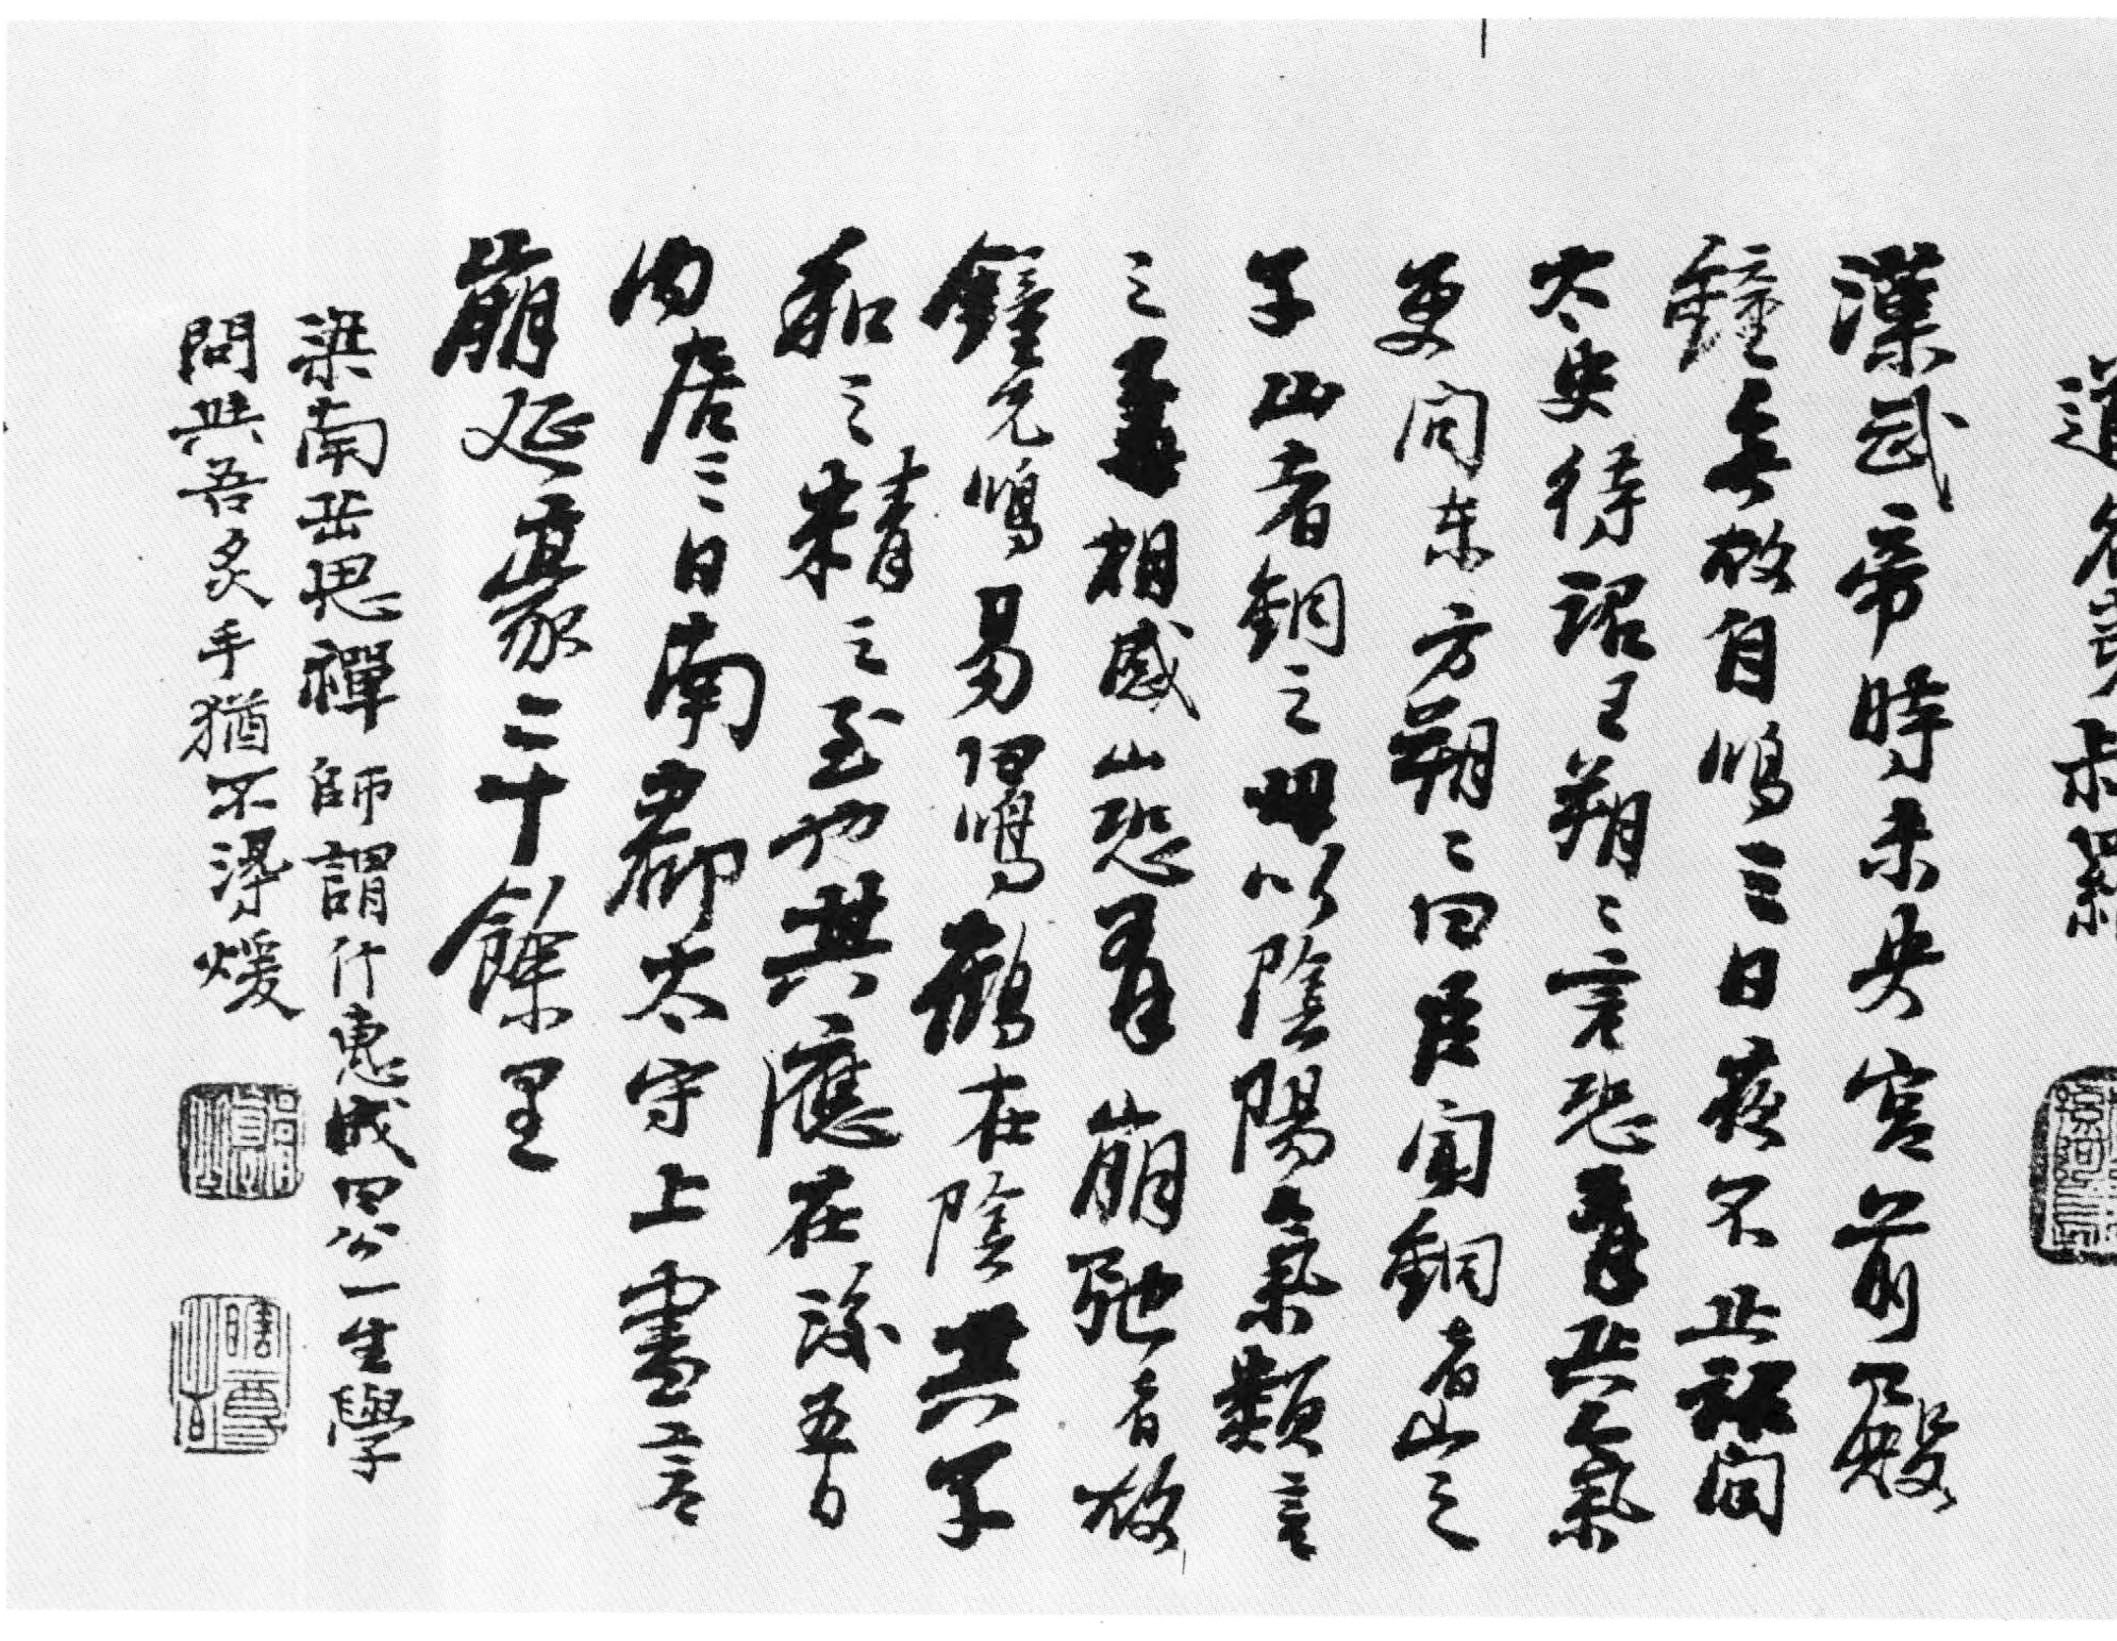 道
漢武帝時未央宮前殿
鐘無故自鳴三日夜不止詔問
太史待詔王朔〻言恐有兵氣
更問東方朔〻曰臣聞銅者山之
子山者銅之母以陰陽氣類言
之子母相感山恐有崩弛者故
鐘先鳴易曰鳴鶴在陰其子
和之精之至也其應在後五日
內居三日南郡太守上書言
山崩延袤二十餘里
梁南岳思禪師謂行惠成曰公一生學
問與吾炙手猶不得煖